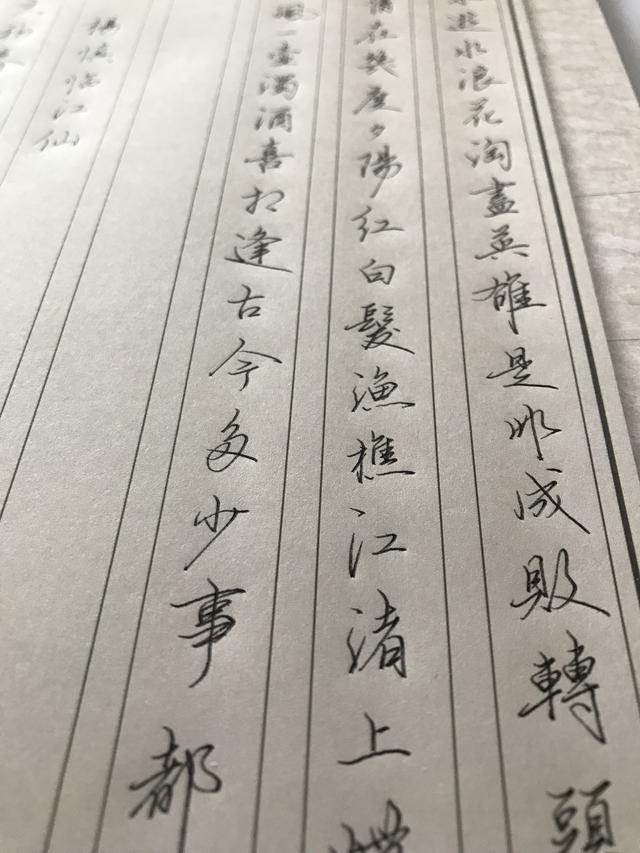 逝水浪花淘盡英雄是非成敗轉頭
舊在幾度夕陽紅白髮漁樵江渚上慣
風一壺濁酒喜相逢古今多少事都
楊慎临江仙